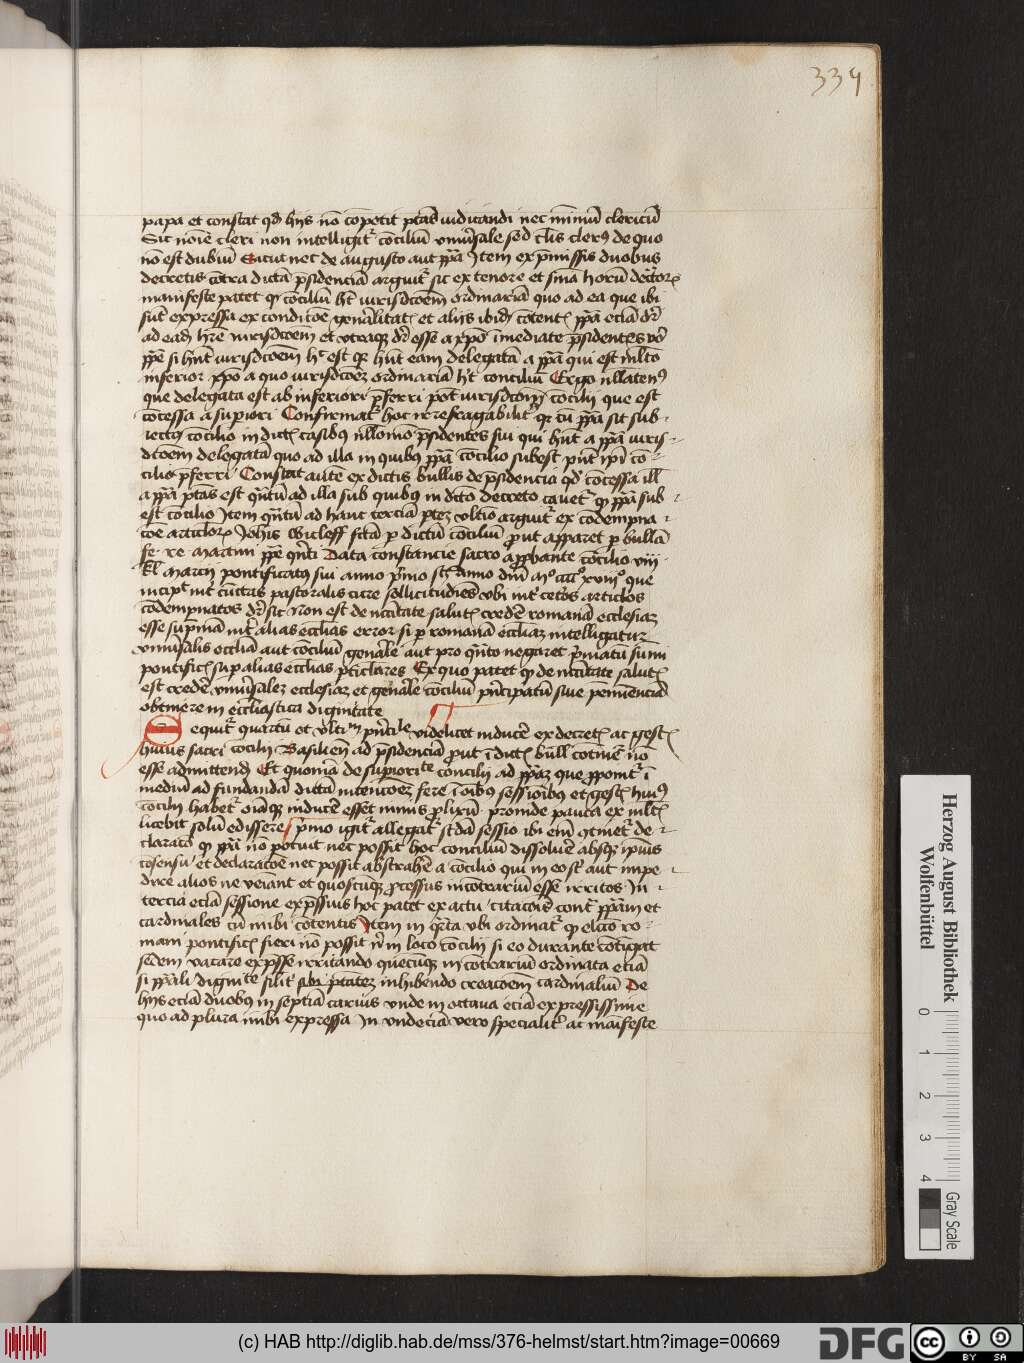 334
papa et constat qd hijs nō cōpetit ptās iudicandi nec minimū clericū
Sic noīe cleri non intelligit᷑ cōciliū vniūsale sed tm̄ clerꝰ de quo
nō est dubiū Sicut nec de augusto aut ppā Jtem ex pmissis duobus
decretis cōtra dictā psidenciā arguit᷑ sic ex tenore et sm̄a horū decretorꝫ
manifeste patet qꝫ cōciliū ht̄ iurisdcōem ordinariā quo ad ea que ibi
sūt expressa ex condicōe generalitatꝭ et alijs ibidꝫ cōtentꝭ ppā eciā dr̄
ad eadē hr̄e iurisdcōem et vtraqꝫ dr̄ esse a xpō īmediate psidentes vō
ppē si hn̄t iurisdcōem hͦ est qꝫ hn̄t eam delegatā a ppā qui est ml̄to
inferior xpō a quo iurisdcōeꝫ ordinariā ht̄ conciliū Ergo nllatenꝰ
que delegata est ab inferiori pferri pōt iurisdcōni cōcilij que est
cōcessa a supiori Confirmat᷑ hoc irrefragabilit᷑ qꝫ cū ppā sit sub
iectꝰ cōcilio in dictꝭ casibꝰ nllomō psidentes sui qui hn̄t a ppā iuris
dcōem delegatā quo ad illa in quibꝰ ppā cōcilio subest pn̄t ipī cō
cilio pferri Constat autē ex dictis bullis de psidencia qd cōcessa ill̄
a ppā ptās est qn̄tū ad illa sub quibꝰ in dcto decreto cauet᷑ qꝫ ppā sub
est cōcilio Jtem qn̄tū ad hanc terciā ptem vltīo arguit᷑ ex cōdempna
cōe articlorꝫ Johīs Wicleff fctā p dictū cōciliū prout apparet p bullā
fe · re · martini ppē qn̄ti Data constancie sacro approbante cōcilio viij
kl̄ marcij pontificatꝰ sui anno pmo sꝫ Anno dnī Mͦ ccccͦ xviijͦ que
incipt int᷑ cūctas pastoralis cure sollicitudīes vbi int᷑ cetōs articlos
cōdempnatos dr̄ sic Non est de nccītate salutꝭ credē romanā ecclesiaꝫ
esse supmā int᷑ alias ecclias error si p romanā eccliaꝫ intelligatur
vniūsalis ecclīā aut cōciliū gen̄ale aut pro qn̄to negaret pmatū sum̄i
pontificꝭ sup alias ecclias pticlares Ex quo patet qꝫ de nccītate salutꝭ
est credē vniūsaleꝫ ecclesiaꝫ et gen̄ale cōciliū pn̄cipatū siue
obtinere in eccl̄iastica dignitate
Sequit᷑ quartū et vltīm pn̄cile videlicet inducē ex decretꝭ ac gestꝭ
huius sacri cōcilij Basilien̄ ad psidenciā prout ī dictꝭ bull̄ cōtinēt nō
esse admittendā Et quoniā de supioritᵗᵉ concilij ad ppāꝫ que pponit᷑ ī
mediū ad fundandā dictā intencōeꝫ fere ī oībꝰ sessionibꝰ et gestꝭ huiꝰ
cōcilij habet᷑ oīaqꝫ inducē esset nimis plixū proinde pauca ex ml̄tꝭ
licebit solū edissere pmo igit᷑ allegat᷑ scda sessio ibi em̄ ꝯtinet᷑ de
claracō qꝫ ppā nō potuit nec possit hoc conciliū dissoluē absqꝫ ipius
cōsensu et declaracōe nec possit abstrahē a cōcilio qui in eo st̄ aut impe
dire alios ne veīant et quoscūqꝫ processus incōtrariū esse irritos Jn
tercia eciā sessione expssius hoc patet ex actu citacōis cont᷑ ppām et
cardinales cū inibi cōtentis Jtem in qrta vbi ordinat᷑ qꝫ elcō ro
mani pontificꝭ fieri nō possit nͥ in loco cōcilij si eo durante cōtīgat
sedem vacare expsse irritando quecūqꝫ in cōtrariū ordinata eciā
si ppāli dignitᵗᵉ silit᷑ sibi ptāteꝫ inhibendo creacōem cardinaliū De
hijs eciā duobꝰ in septīa carius vnde in octaua eciā expressissime
quo ad plura inibi expressa Jn vndecīa vero specialit᷑ ac maīfeste
Herzog August Bibliothek
Wolfenbüttel
0 1 2 3 4
Gray Scale
(c) HAB http://diglib.hab.de/mss/376-helmst/start.htm?image=00669
DFG
cc
BY SA